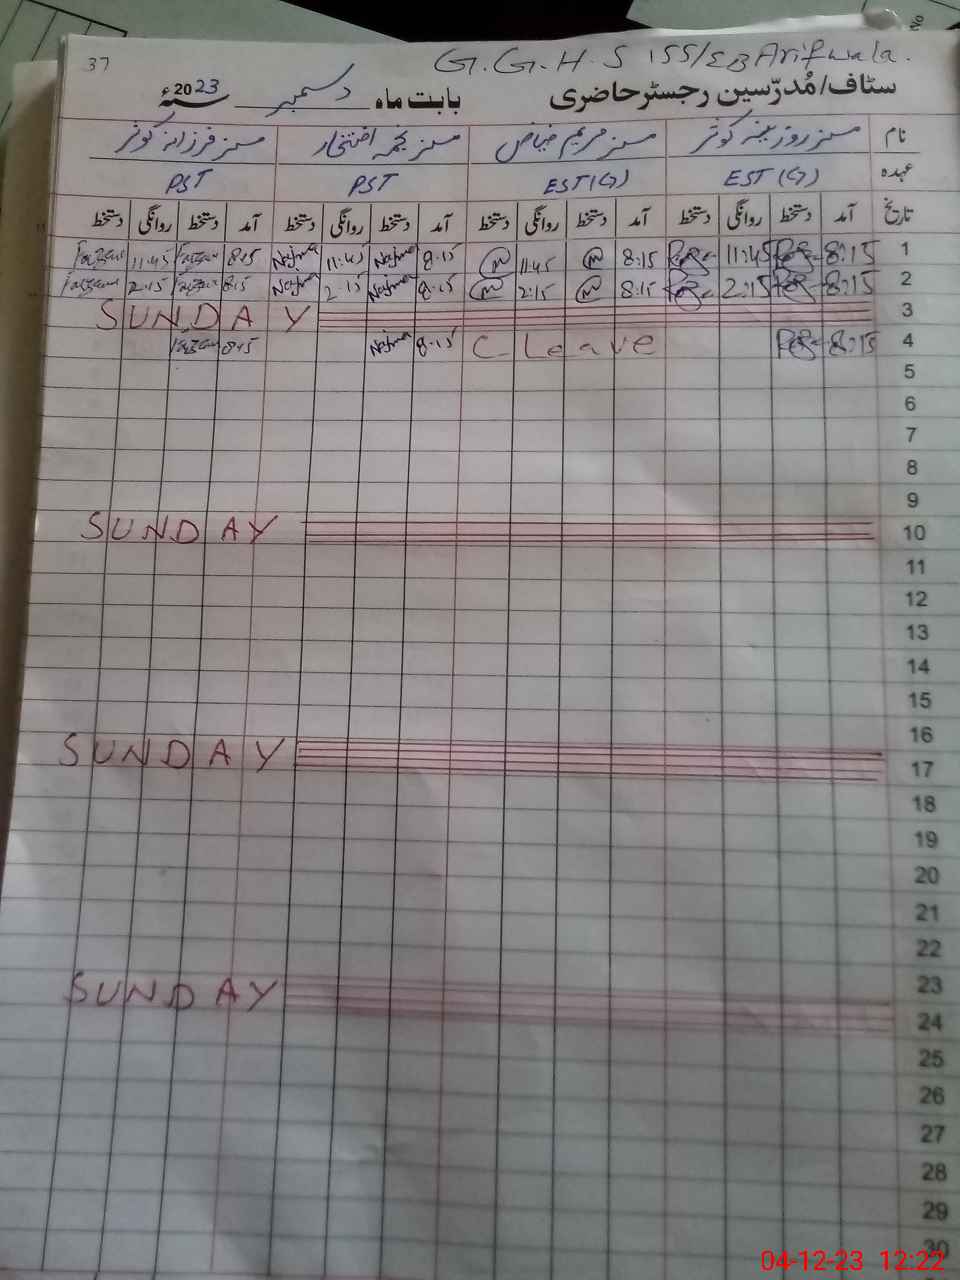 37 G.G.H.S 155/EB Arifwala.
سٹاف/مُدرّسین رجسٹر حاضری بابت ماہ دسمبر سنہ 2023ء
نام مسز روزینہ کوثر مسز مریم فیاض مسز نجمہ افتخار مسز فرزانہ کوثر
عہدہ EST (G) EST (G) PST PST
تاریخ آمد دستخط روانگی دستخط آمد دستخط روانگی دستخط آمد دستخط روانگی دستخط آمد دستخط روانگی دستخط
1 8:15 11:45 8:15 11:45 8:15 Najma 11:45 Najma 8:15 Farzana 11:45 Farzana
2 8:15 2:15 8:15 2:15 8:15 Najma 2:15 Najma 8:15 Farzana 2:15 Farzana
SUNDAY 3
4 8:15 C-Leave 8:15 Najma 8:15 Farzana
5
6
7
8
9
SUNDAY 10
11
12
13
14
15
16
SUNDAY 17
18
19
20
21
22
23
SUNDAY 24
25
26
27
28
29
30
04-12-23 12:22